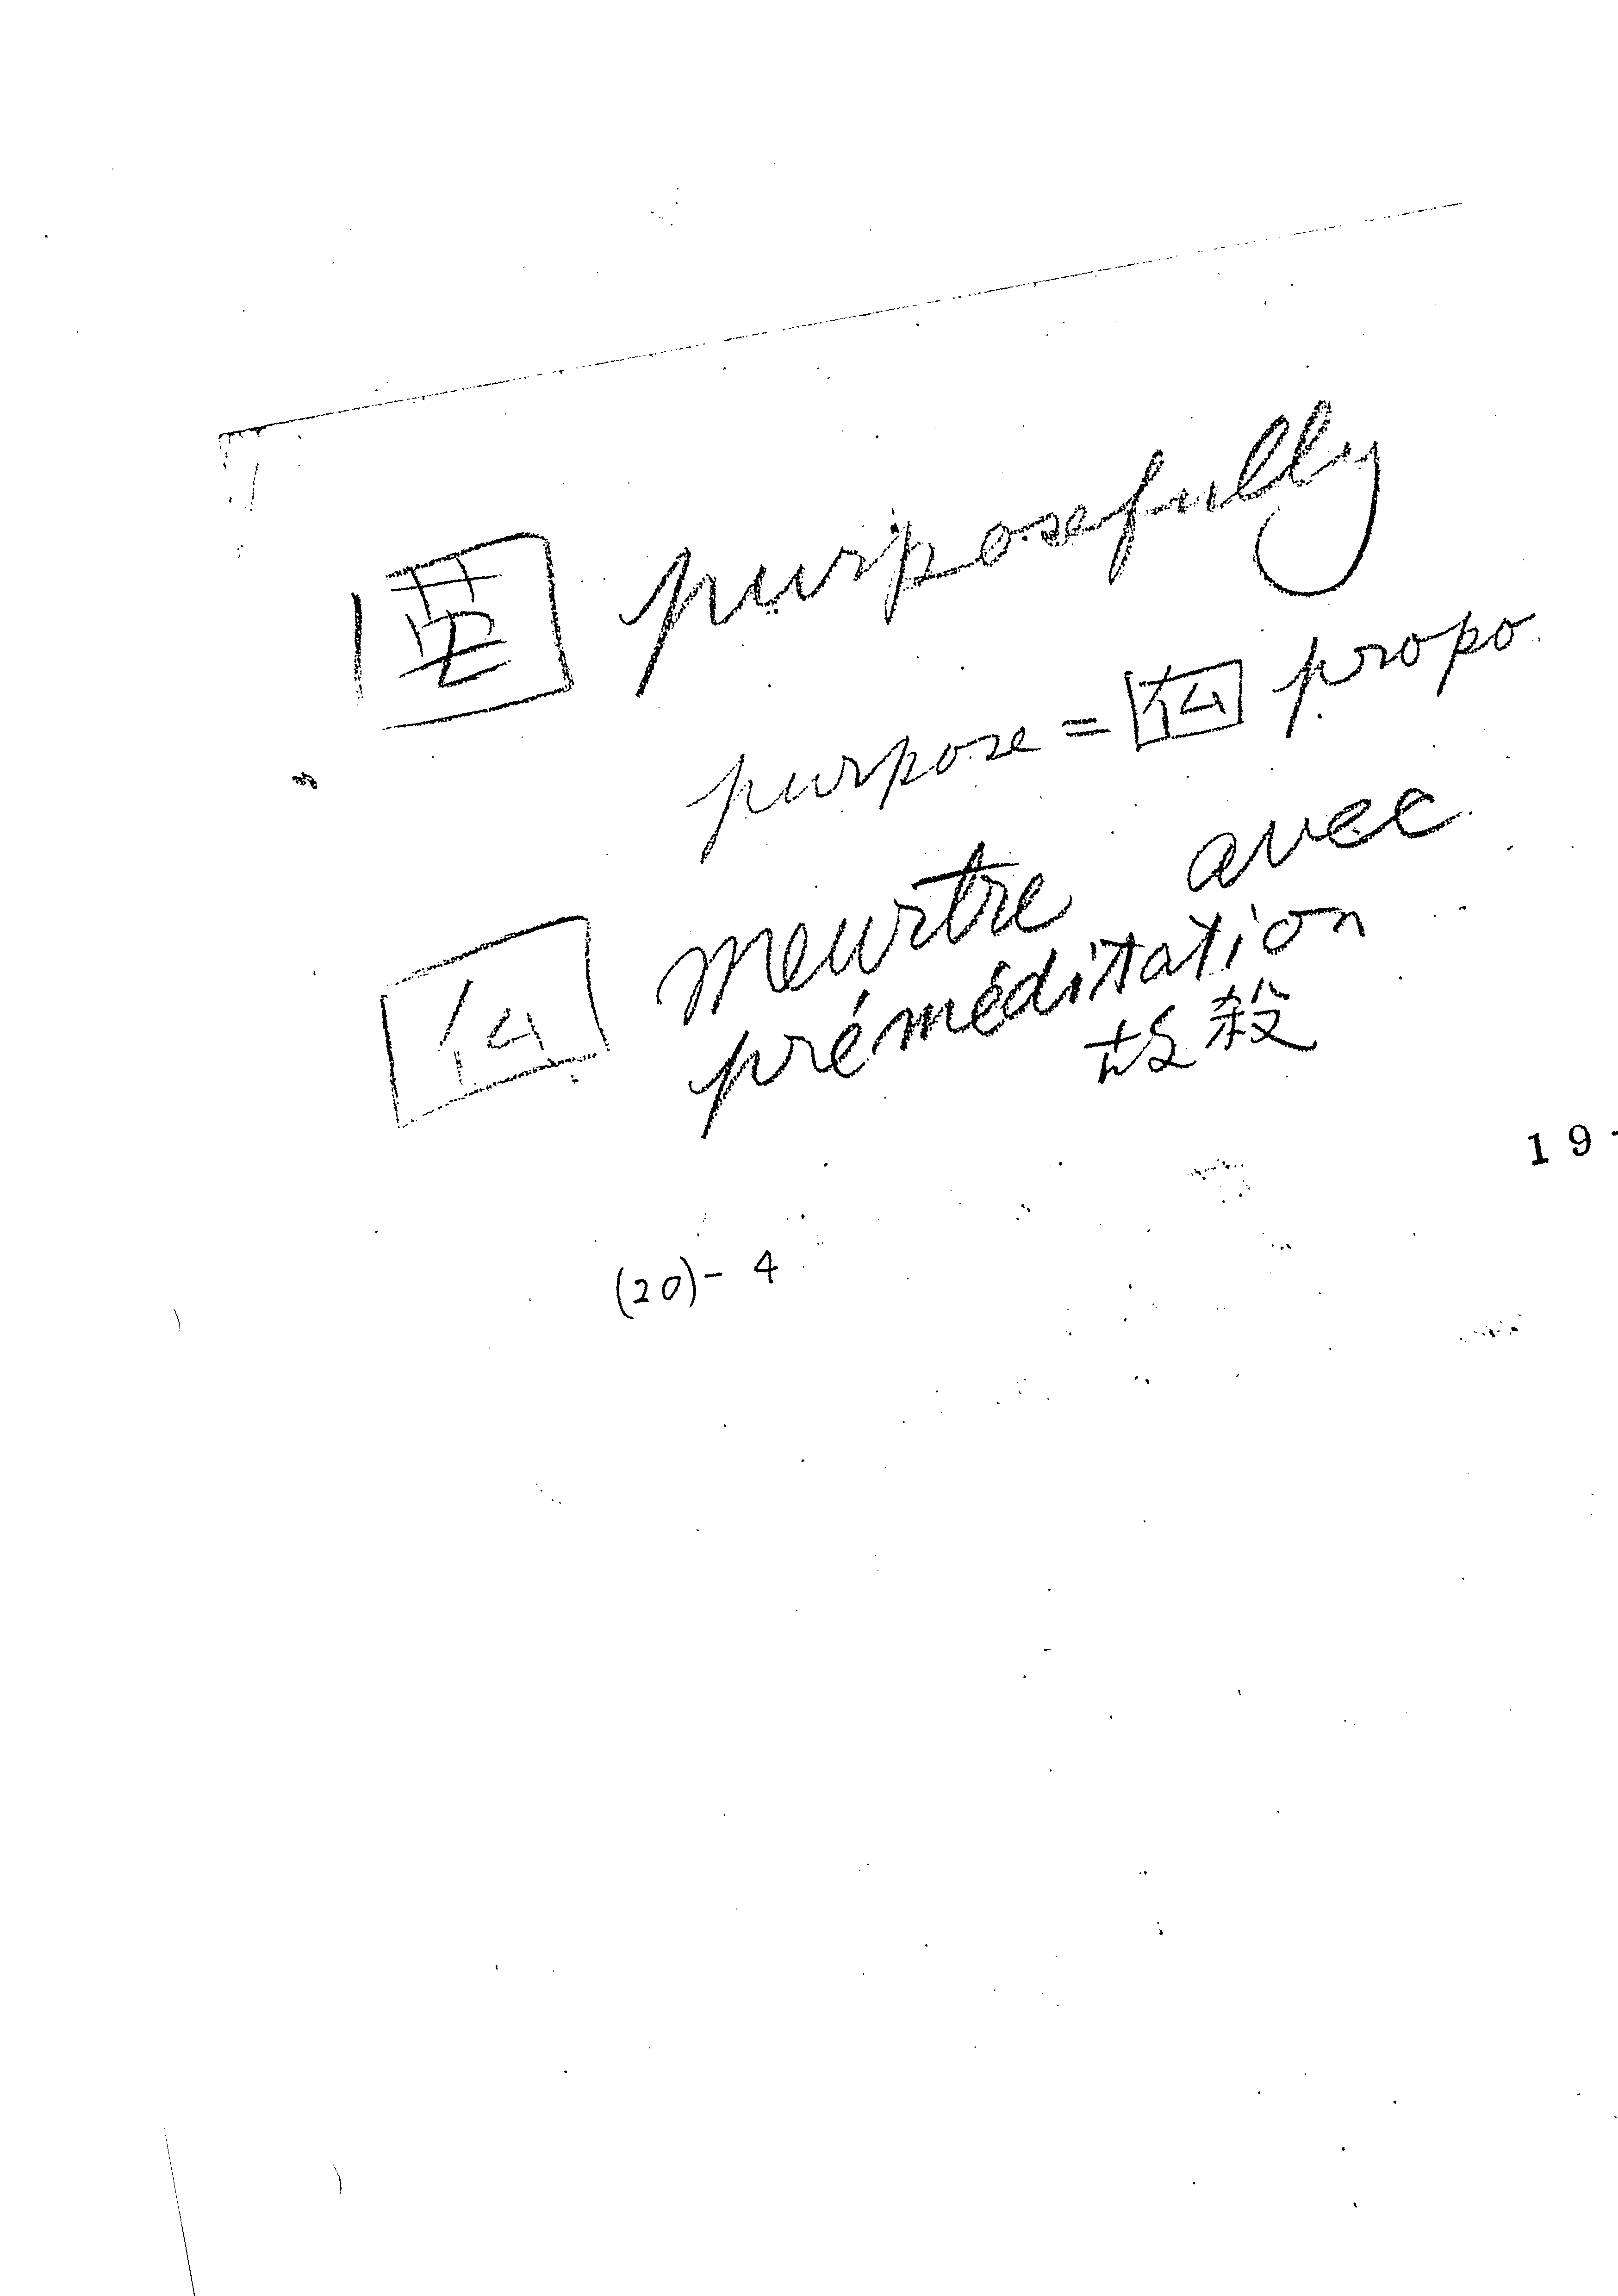 英 purposefully
purpose = 仏 propo
仏 meurtre avec
préméditation
故殺
19
(20)-4